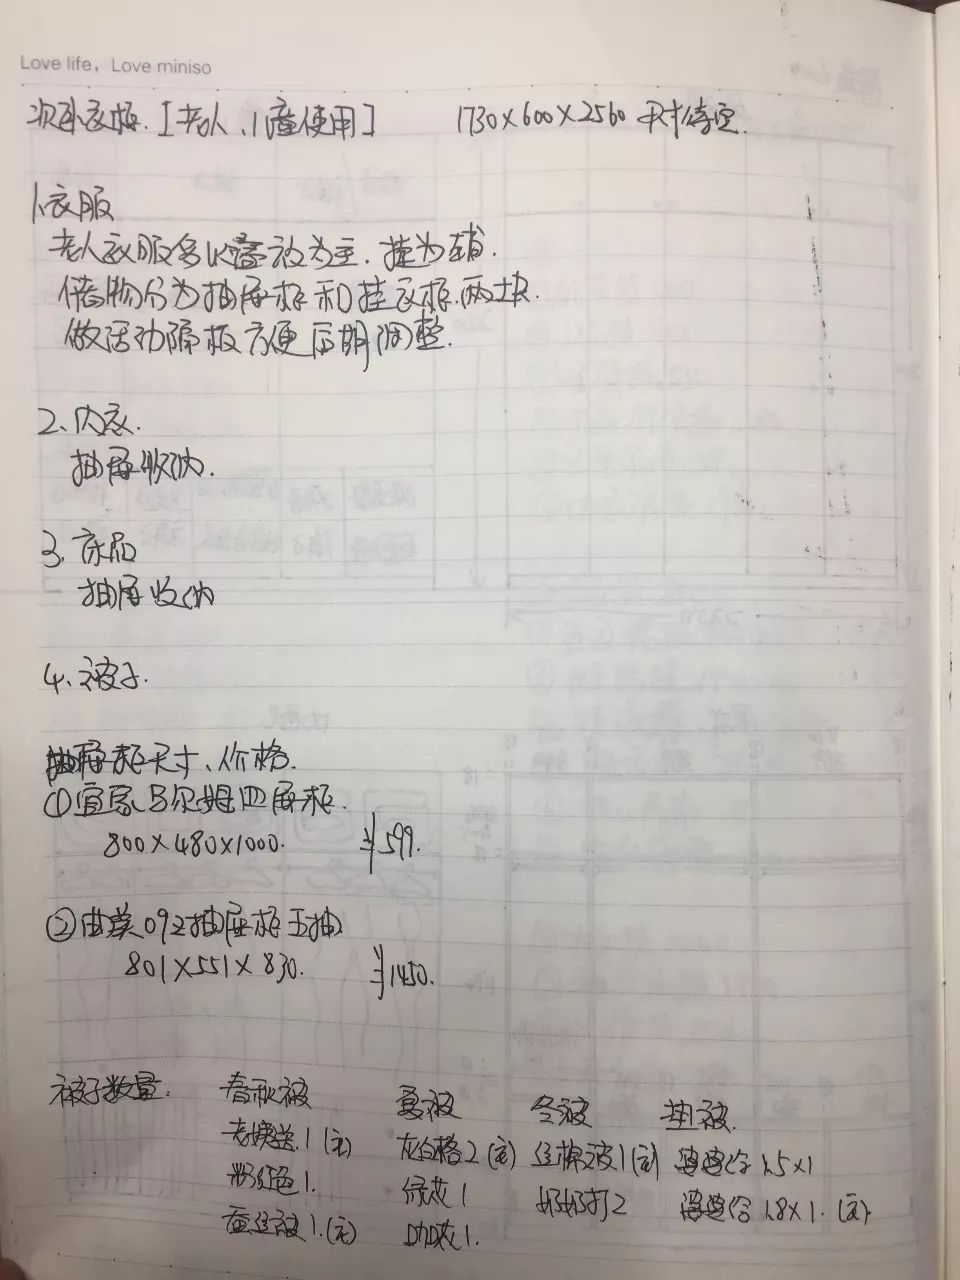 Love life, Love miniso
次卧衣柜. [老人、儿童使用] 1730×600×2560 尺寸待定.
1.衣服
老人衣服多以叠放为主, 挂为辅.
储物分为抽屉柜和挂衣柜.两块.
做活动隔板方便后期调整.
2、内衣.
抽屉收纳.
3、床品
抽屉收纳
4、被子.
抽屉柜尺寸、价格.
①宜家马尔姆四屉柜.
800×480×1000. ¥599.
②曲美092抽屉柜五抽
801×551×830. ¥1450.
被子数量. 春秋被 夏被 冬被 抽被.
老姨送.1(主) 灰白格2(主) 丝棉被1(主) 婆婆给1.5×1
粉红色1. 绿花1 奶奶打2 婆婆给1.8×1.(主)
蚕丝被1.(主) 1.